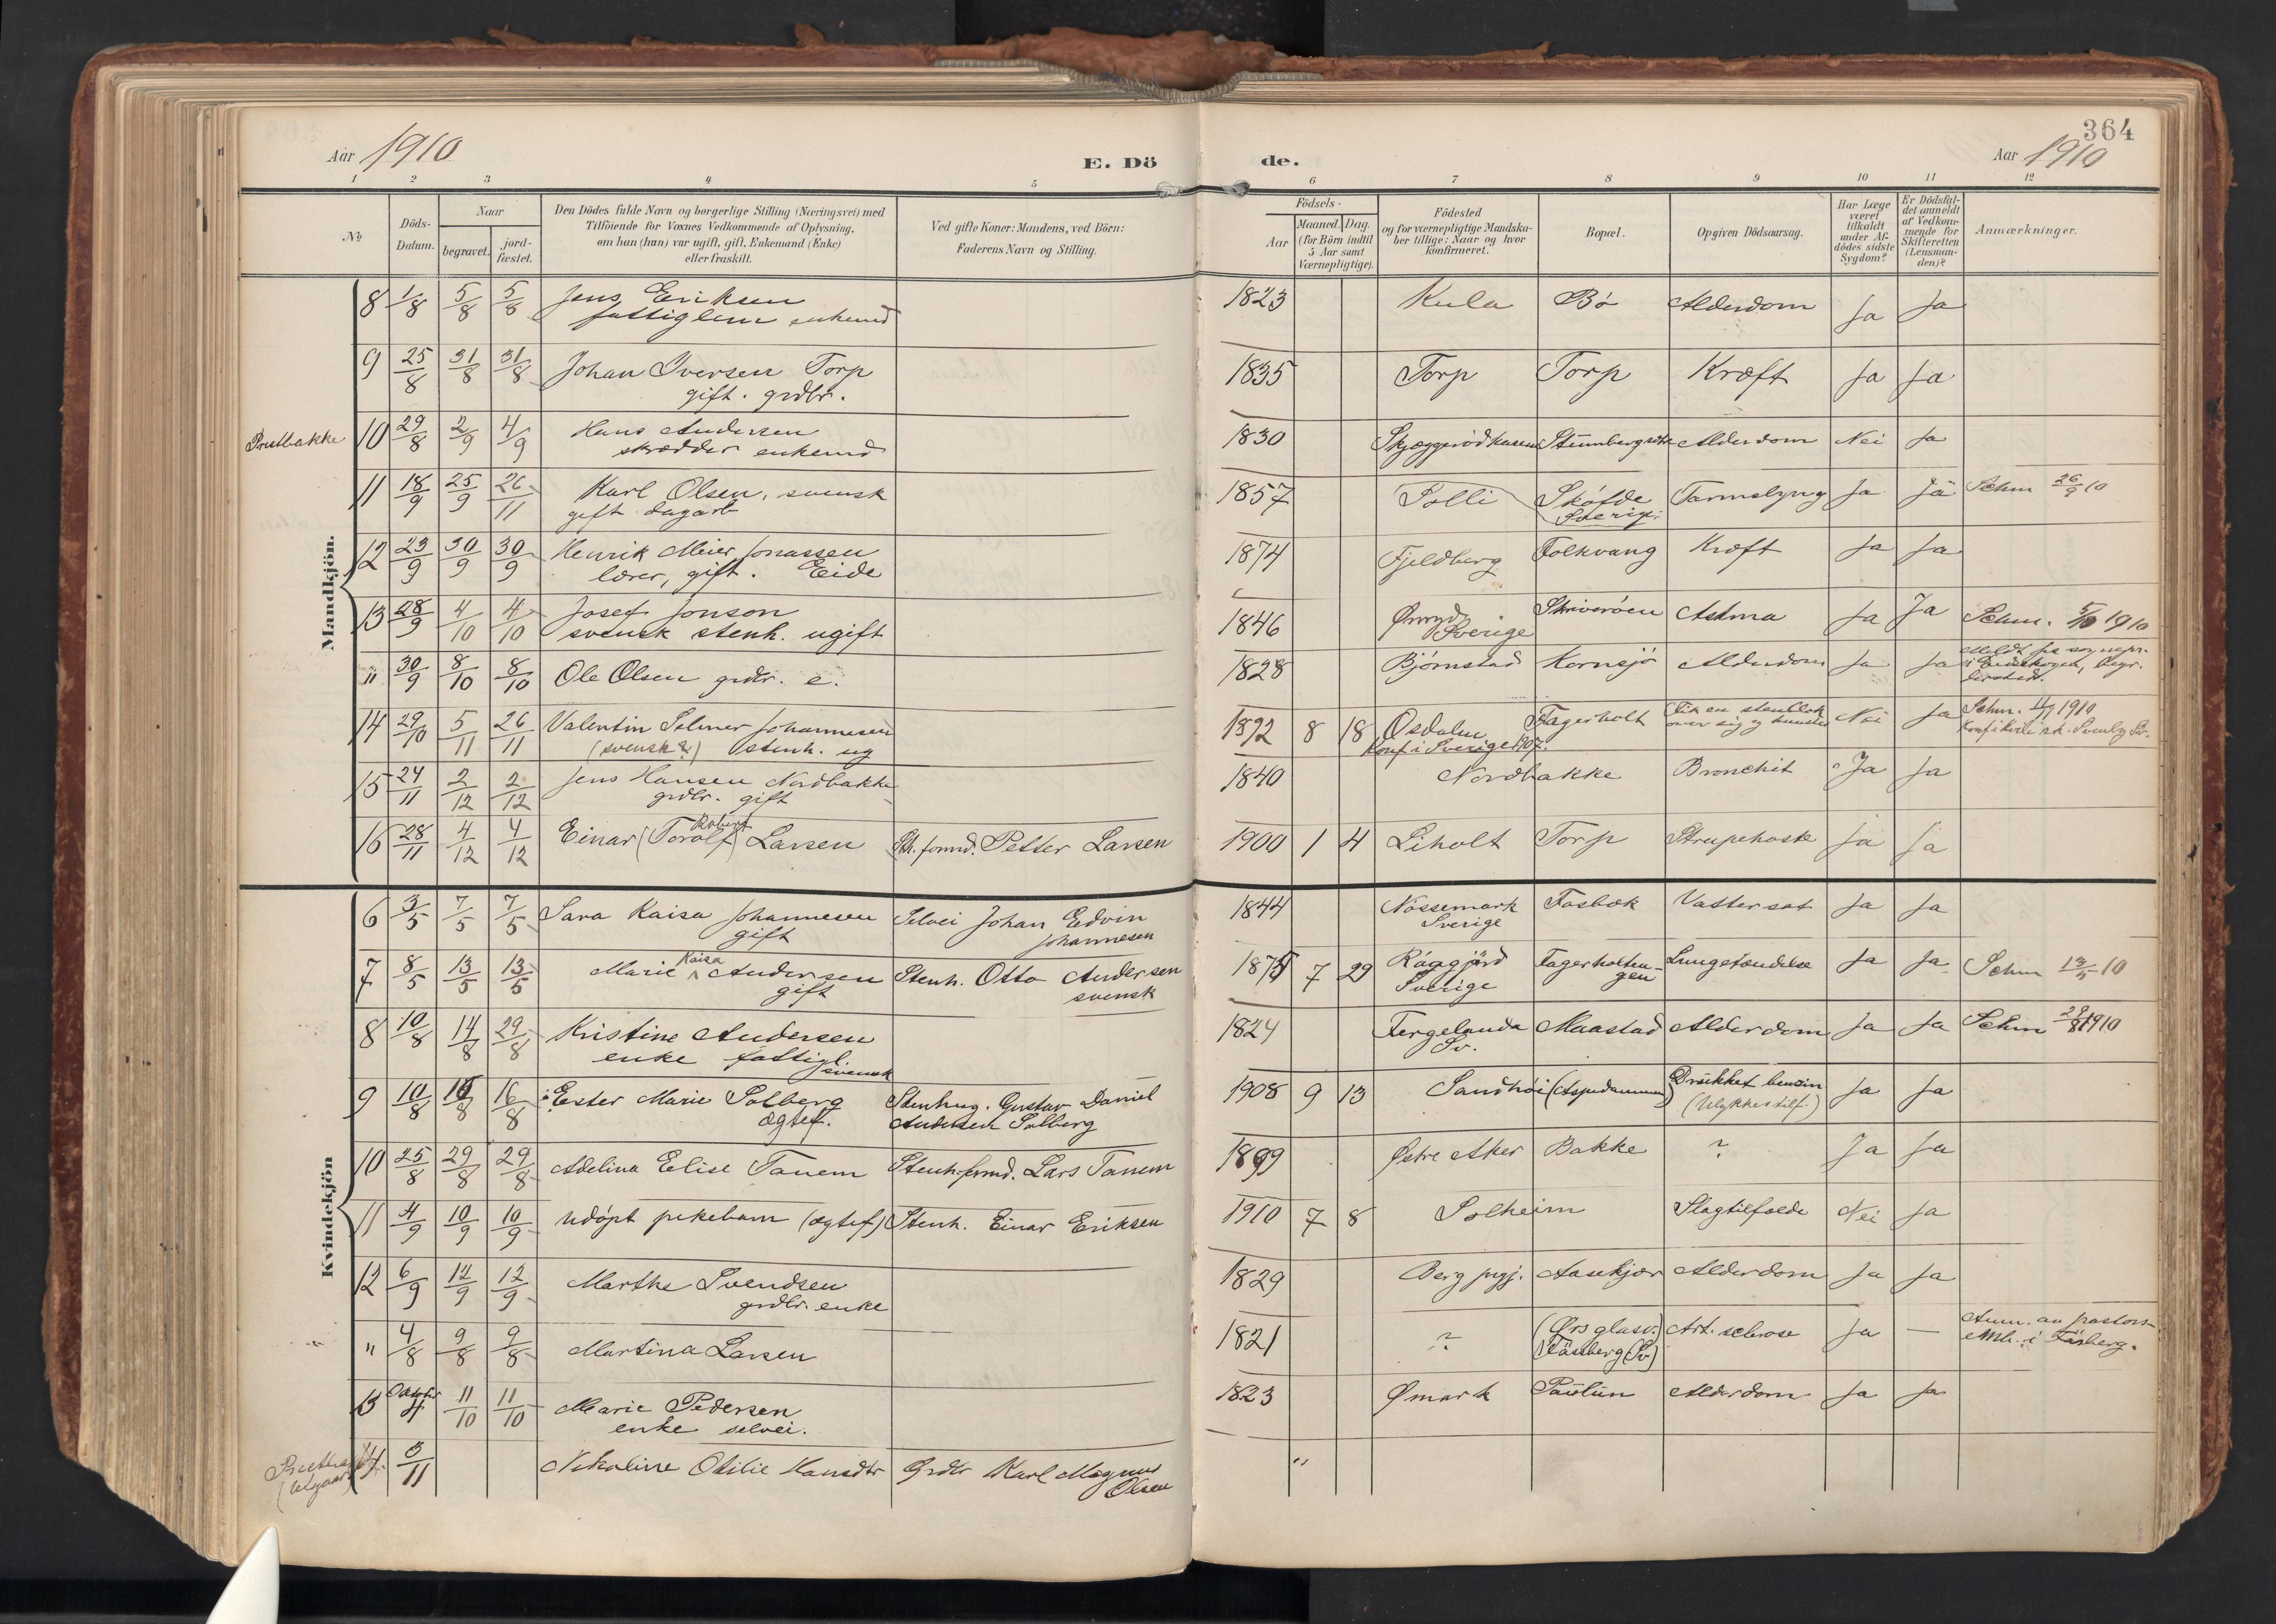 364
Aar 1910
E. Dö de.
Aar 1910
1 2 3 4 5 6 7 8 9 10 11 12
No
Döds-
Datum.
Naar
begravet.
jord-
fæstet.
Den Dödes fulde Navn og borgerlige Stilling (Næringsvei) med
Tilföiende for Voxnes Vedkommende af Oplysning,
om han (hun) var ugift, gift, Enkemand (Enke)
eller fraskilt.
Ved gifte Koner: Mandens, ved Börn:
Faderens Navn og Stilling.
Födsels-
Aar
Maaned. Dag.
(for Börn indtil
5 Aar samt
Værnepligtige).
Födested
og for værnepligtige Mandska-
ber tillige: Naar og hvor
konfirmeret.
Bopæl.
Opgiven Dödsaarsag.
Har Læge
været
tilkaldt
under Af-
dödes sidste
Sygdom?
Er Dödsfal-
det anmeldt
af Vedkom-
mende for
Skifteretten
(Lensman-
den)?
Anmærkninger.
Mandkjön.
8 1/8 5/8 5/8 Jens Eriksen
fattiglem enkemd
1823 Kula Bö Alderdom Ja Ja
9 25/8 31/8 31/8 Johan Iversen Torp
gift. grdbr.
1835 Torp Torp Kræft Ja Ja
Prestbakke 10 29/8 2/9 4/9 Hans Andersen
skrædder enkemd
1830 Alderdom Nei Ja
11 18/9 25/9 26/11 Karl Olsen, svensk
gift dagarb
1857 Solli Sköfde
Sverige. Tarmslyng Ja Ja Schm 26/9 10
12 23/9 30/9 30/9 Henrik Meier Jonassen
lærer, gift. Eide
1874 Fjeldberg Folkvang Kræft Ja Ja
13 28/9 4/10 4/10 Josef Jonson
svensk stenh. ugift
1846 Sverige Skriveröen Astma Ja Ja Schm. 5/10 1910
" 30/9 8/10 8/10 Ole Olsen grdbr. e.
1828 Björnstad Kornsjö Alderdom Ja Ja Meldt fra sognepr.
14 29/10 5/11 26/11 Valentin Selmer Johannesen
(svensk?) stenh. ug
1892 8 18 Osdalen
Konf i Sverige 1907. Fagerholt Fik en stenblok
over sig Nei Ja Schm. 1910
15 24/11 2/12 2/12 Jens Hansen Nordbakke
grdbr. gift
1840 Nordbakke Bronchit Ja Ja
16 28/11 4/12 4/12 Einar (Torolf) Robert Larsen Sth. formd. Petter Larsen
1900 1 4 Liholt Torp Strupehoste Ja Ja
Kvindekjön
6 3/5 7/5 7/5 Sara Kaisa Johannesen
gift Selvei Johan Edvin
Johannesen
1844 Nössemark
Sverige Fosbæk Vattersot Ja Ja
7 8/5 13/5 13/5 Marie Kaisa Andersen
gift Stenh. Otto Andersen
svensk
1875 7 29 Råggjärd
Sverige Fagerholtn-
gen Lungetændelse Ja Ja Schm 13/5 10
8 10/8 14/8 29/8 Kristine Andersen
enke fattigl.
svensk
1824 Fergelanda
Sv. Maastad Alderdom Ja Ja Schm 29/8 1910
9 10/8 16/8 16/8 Ester Marie Solberg
ægtef. Stenhug. Gustav Daniel
Andersen Solberg
1908 9 13 Sandhöi (Aspedammen) Drukket benzin
(Ulykkestilf.) Ja Ja
10 25/8 29/8 29/8 Adelina Elise Tanem Stenh. formd. Lars Tanem
1899 Østre Aker Bakke ? Ja Ja
11 4/9 10/9 10/9 Udöpt pikebarn (ægtef) Stenh. Einar Eriksen
1910 7 8 Solheim Slagtilfælde Nei Ja
12 6/9 12/9 12/9 Marthe Svendsen
grdbr. enke
1829 Berg prgj. Aasekjær Alderdom Ja Ja
" 4/8 9/8 9/8 Martina Larsen
1821 ? (Ørs glasv.)
(Fässberg Sv) Art. sclerose Ja — Anm. av pastors-
emb. i Fässberg.
13 4 11/10 11/10 Marie Pedersen
enke selvei.
1823 Ømark Paulün Alderdom Ja Ja
14 3/11 Nikoline Otilie Hansdtr Grdbr Karl Magnus
Olsen
"